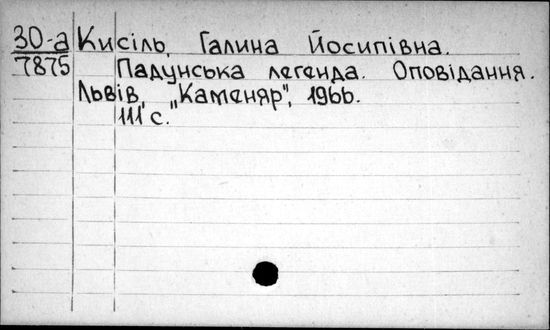 30-а Кисіль, Галина Йосипівна.
7875 Падунська легенда. Оповідання.
Львів, „Каменяр", 1966.
111 с.